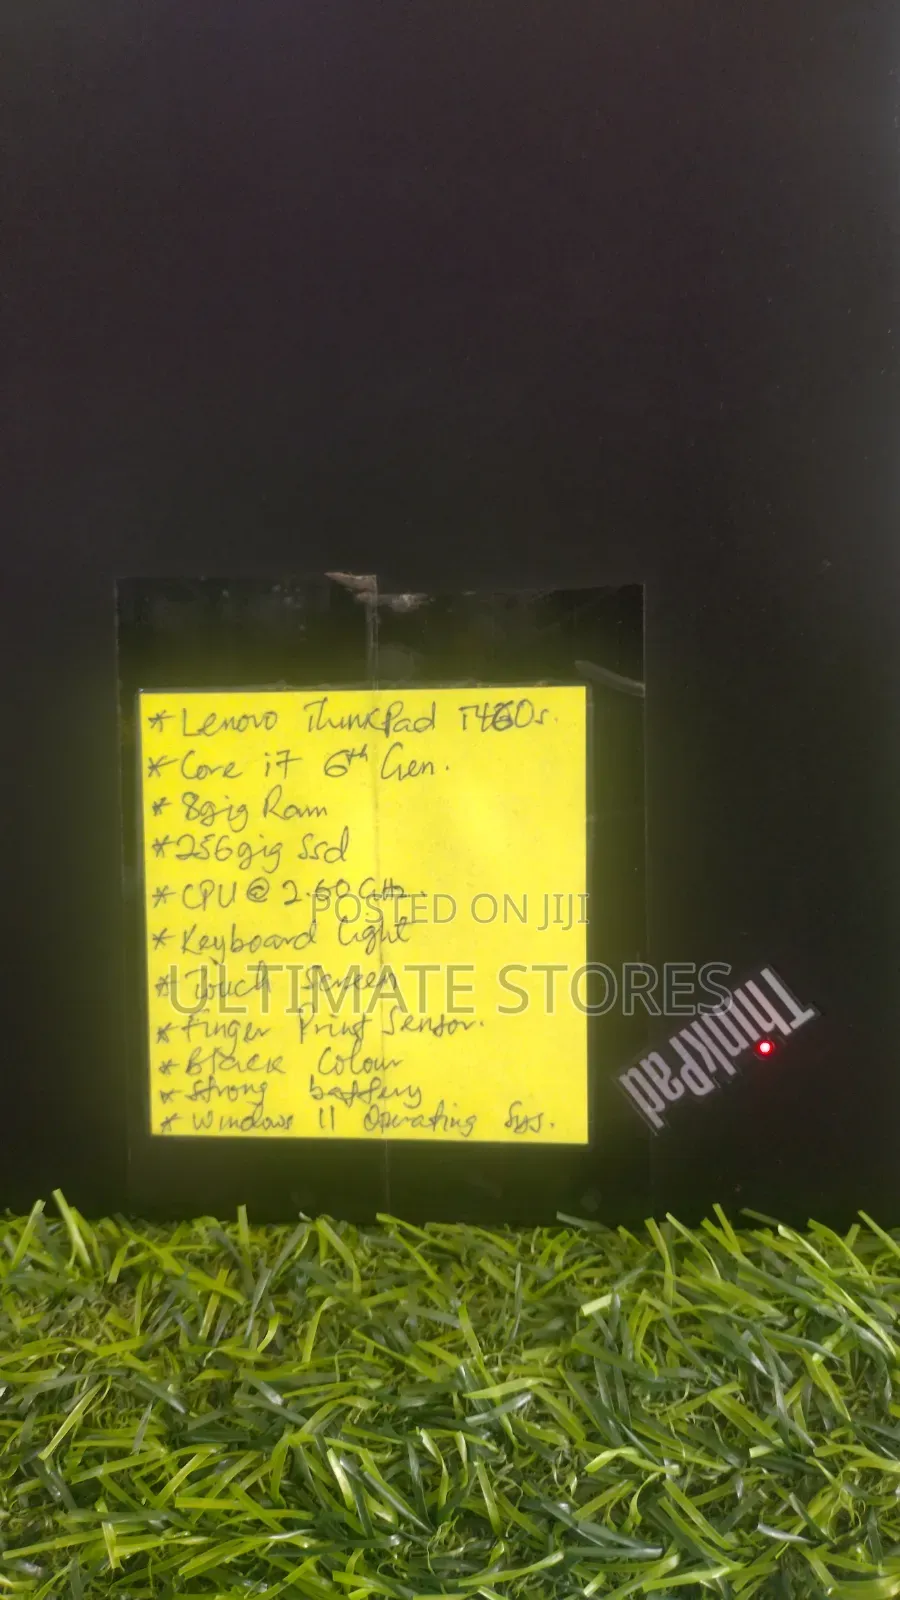 * Lenovo ThinkPad T460s.
* Core i7 6th Gen.
* 8gig Ram
* 256gig Ssd
* CPU @ 2.60 GHz.
* Keyboard Light
* Touch Screen
* Finger Print Sensor.
* Black Colour
* Strong battery
* Windows 11 Operating Sys.
POSTED ON JIJI
ULTIMATE STORES
ThinkPad